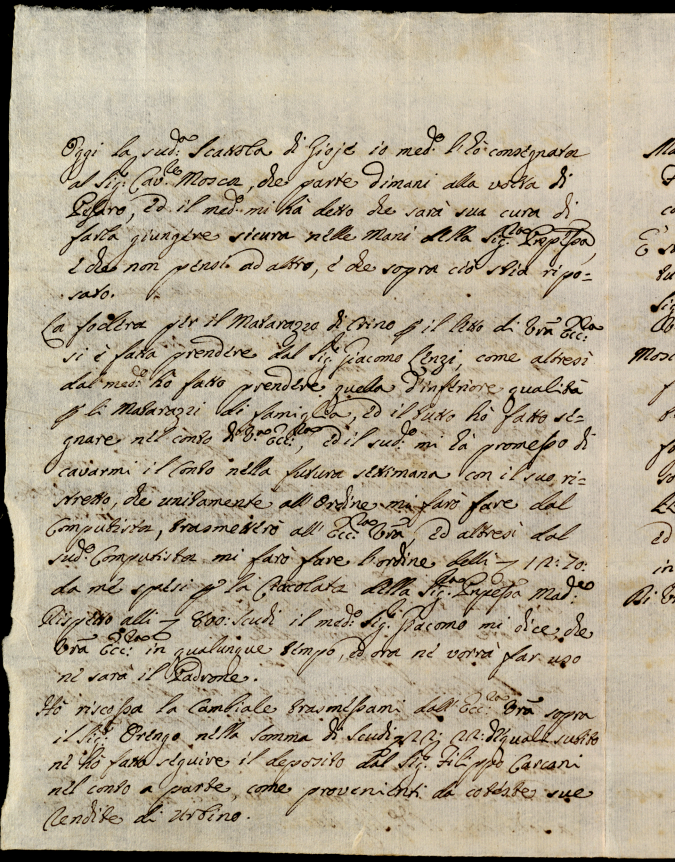 Oggi la sud.ª Scattola di Gioje io med.º l'hò consegnata
al Sig.r Cav.re Mosca, che parte dimani alla volta di
Pesaro, ed il med.º mi hà detto che sarà sua cura di
farla giungere sicura nelle mani della Sig.ra Prñpessa,
è che non pensi ad altro, è che sopra ciò stia ripo=
sato.
La fodera per il Matarazzo di Crino p il letto di Vrã Ecc.za
si è fatta prendere dal Sig.r Giacomo Lenzi, come altresì
dal med.º hò fatto prendere quella d'inferiore qualità
p li Matarazzi di famiglia, ed il tutto hò fatto se=
gnare nel conto di Vrã Ecc.za, ed il sud.º mi hà promesso di
cavarmi il Conto nella futura settimana con il suo ri=
stretto, che unitamente all'Ordine mi farò fare dal
Computista, trasmetterò all'Ecc.za Vrã, ed altresì dal
sud.º Computista mi farò fare l'ordine delli 12: 70:
da mè spesi p la Ciocolata della Sig.ra Prñpessa Mad.e
Rispetto alli 800: scudi il med.º Sig.r Giacomo mi dice, che
Vrã Ecc.za in qualunque tempo, ed ora ne vorrà far uso
ne sarà il Padrone.
Hò riscossa la Cambiale trasmessami dall'Ecc.za Vrã sopra
il Sig.r Orengo nella somma di Scudi quali subito
ne hò fatto seguire il deposito dal Sig.r Filippo Carcani
nel conto a parte, come provenienti da coteste sue
Rendite di Urbino.
Mosc
ed
in